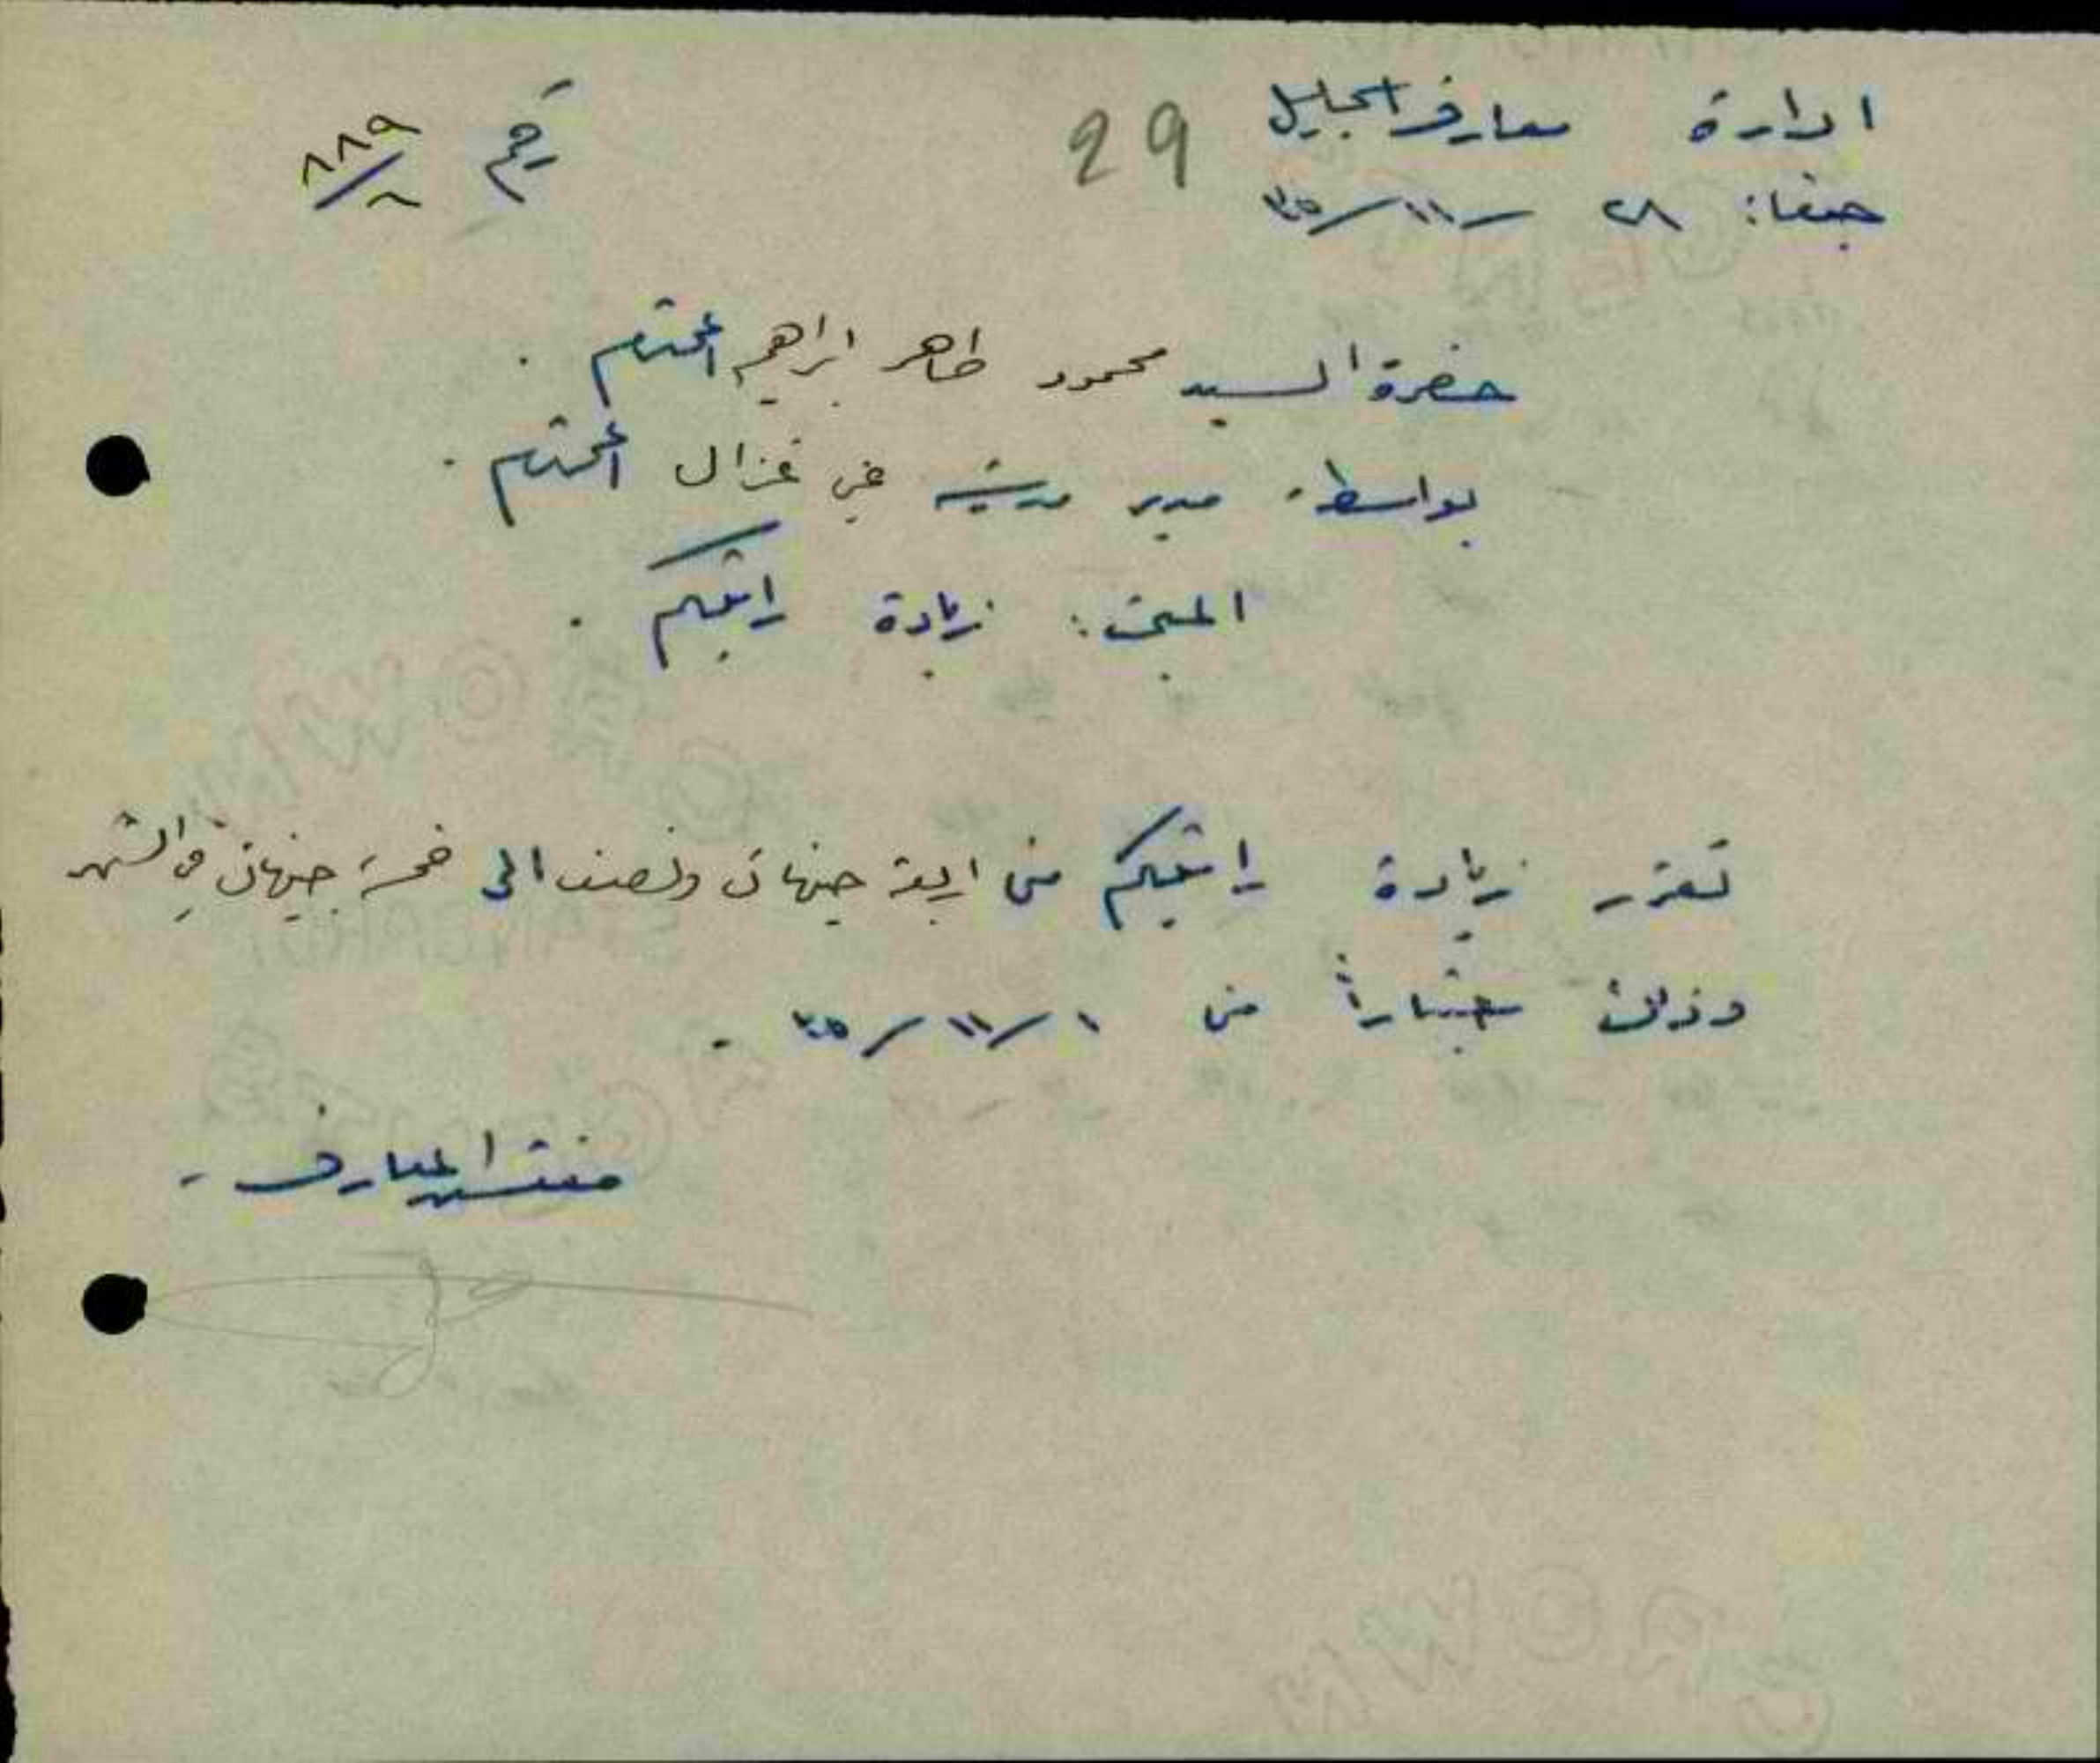 ادارة معارف الجليل 29 رقم ٨٨٩/٨
حيفا: ٢٨ / ١١ / ٣٥
حضرة السيد محمود طاهر ابراهيم المحترم .
بواسطة مدير مدرسة عين غزال المحترم .
المبحث: زيادة راتبكم .
تقرر زيادة راتبكم من اربعة جنيهات ونصف الى خمسة جنيهات في الشهر
وذلك اعتباراً من ١ / ١١ / ٣٥ .
مفتش المعارف -